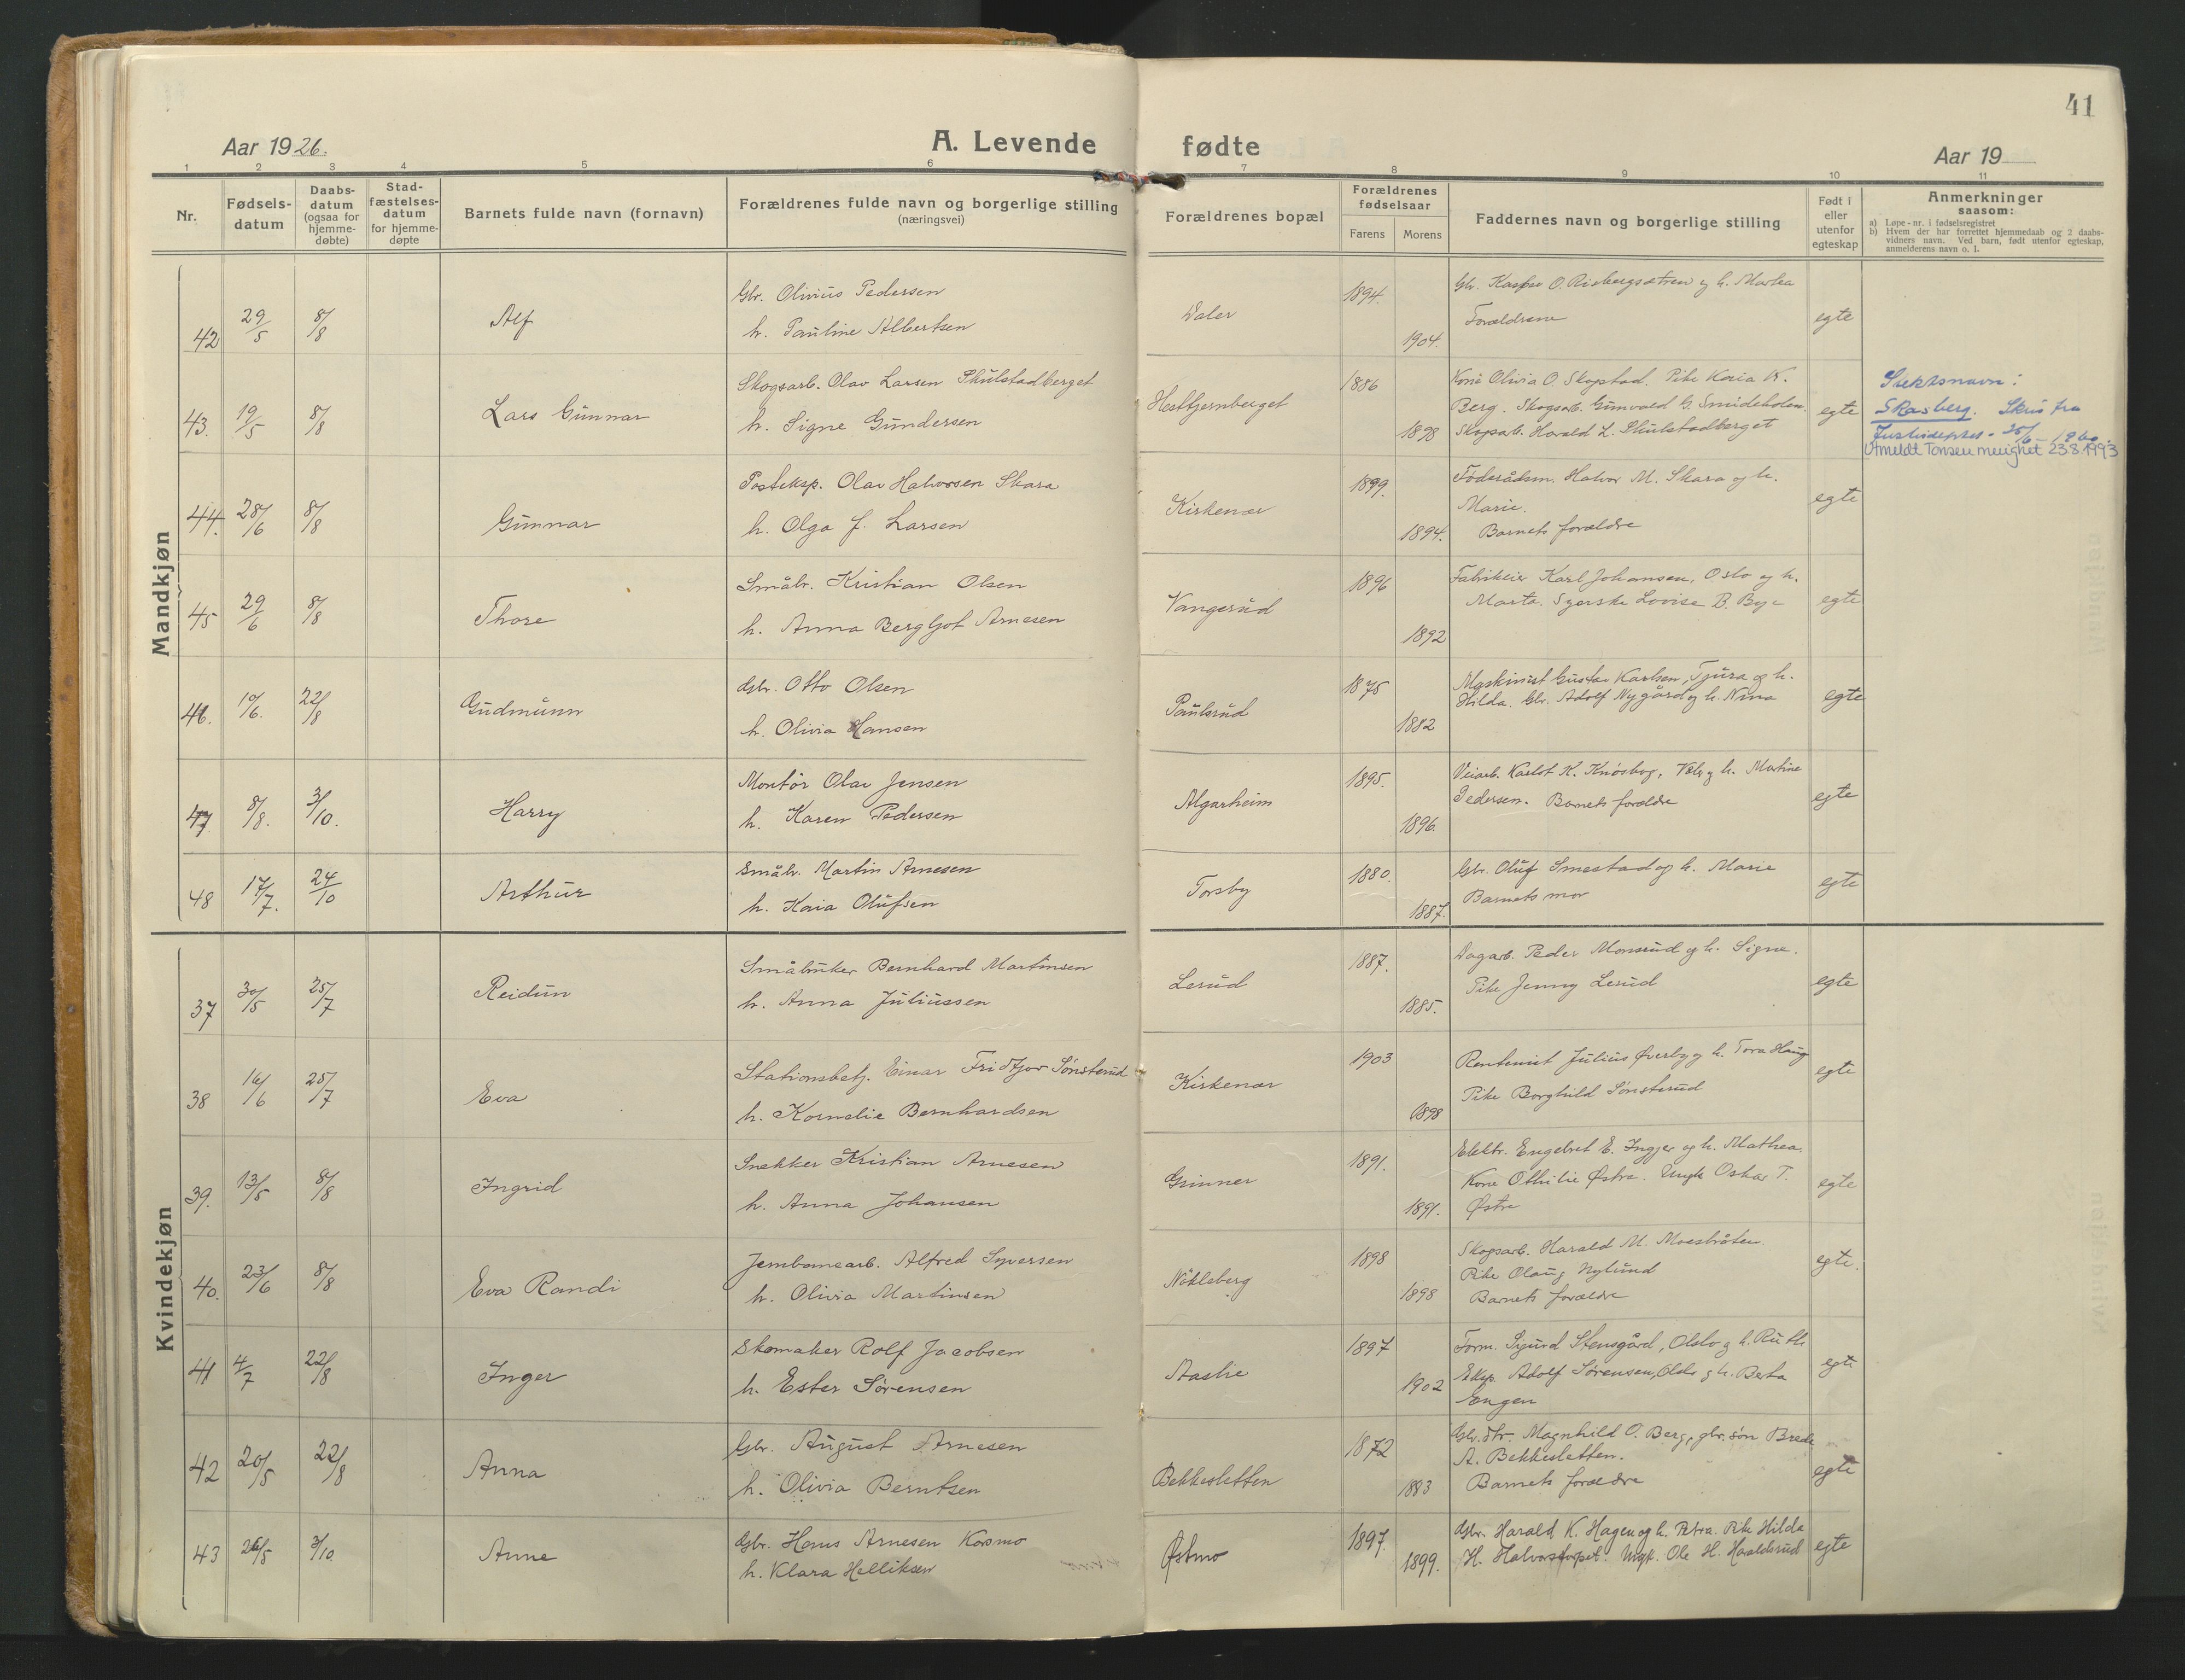 41
Aar 1926.
A. Levende fødte
Aar 19
1 2 3 4 5 6 7 8 9 10 11
Nr.
Fødsels-
datum
Daabs-
datum
(ogsaa for
hjemme-
døbte)
Stad-
fæstelses-
datum
for hjemme-
døpte
Barnets fulde navn (fornavn)
Forældrenes fulde navn og borgerlige stilling
(næringsvei)
Forældrenes bopæl
Forældrenes
fødselsaar
Farens Morens
Faddernes navn og borgerlige stilling
Født i
eller
utenfor
egteskap
Anmerkninger
saasom:
a) Løpe-nr. i fødselsregistret
b) Hvem der har forrettet hjemmedaab og 2 daabs-
vidners navn. Ved barn, født utenfor egteskap,
anmelderens navn o. l.
Mandkjøn
42 29/5 8/8 Alf
Gbr. Olivius Pedersen
h. Pauline Albertsen
Valer 1894 1904.
Gbr. Kaspar O. Risbergsætren og h. Martea
Forældrene
egte
43. 19/5 8/8 Lars Gunnar
Skogsarb. Olav Larsen Skulstadberget
h. Signe Gundersen
Hestkjernberget 1886 1898
Kone Olivia O. Skogstad. Pike Karia K.
Berg. Skogsarb. Gunvald G. Smideholen.
Skogsarb. Harald L. Skulstadberget
egte
Slektsnavn:
Skasberg. Skriv fra
Justisdeptet. 25/6 - 1960.
Utmeldt Tonsen menighet 23.8.1993
44. 28/6 8/8 Gunnar
Posteksp. Olav Halvorsen Skara
h. Olga J. Larsen
Kirkenær 1899. 1894.
Føderådsm. Halvor M. Skara og h.
Marie.
Barnets forældre
egte
45 29/6 8/8 Thore
Småbr. Kristian Olsen
h. Anna Bergljot Arnesen
Vangerud 1896 1892
Fabrikeier Karl Johansen, Oslo og h.
Marta. Syerske Lovise B. Bye
egte
46. 10/6. 22/8 Gudmunn
Gbr. Otto Olsen
h. Olivia Hansen
Paulsrud 1875 1882
Maskinist Gustav Karlsen, Tjura og h.
Hilda. Gbr. Adolf Nygård og h. Nina
egte
47 8/8. 3/10. Harry
Montør Olav Jensen
h. Karen Pedersen
Algarheim 1895. 1896.
Veiarb. Karlot K. Knosbog, Våler og h. Martine
Pedersen. Barnets forældre
egte
48 17/7. 24/10 Arthur
Småbr. Martin Arnesen
h. Kaia Olufsen
Torsby 1880. 1887.
Gbr. Oluf Smestad og h. Marie
Barnets mor
egte
Kvindekjøn
37 30/5 25/7 Reidun
Småbruker Bernhard Martinsen
h. Anna Juliussen
Lerud 1887. 1885.
Dagarb. Peder Monsrud og h. Signe.
Pike Jenny Lerud
egte
38 16/6 25/7 Eva
Stationsbetj. Einar Fridtjov Sønsterud
h. Kornelie Bernhardsen
Kirkenær 1903 1898
Rentenist Julius Øverby og h. Tora Haug
Pike Borghild Sønsterud
egte
39. 13/5 8/8 Ingrid
Snekker Kristian Arnesen
h. Anna Johansen
Grinner 1891. 1891.
Elektr. Engebret E. Ingjer og h. Mathea.
Kone Othilie Østre. Ungk. Oskar T.
Østre
egte
40. 23/6 8/8 Eva Randi
Jernbanearb. Alfred Syversen
h. Olivia Martinsen
Nökleberg 1898 1898
Skogsarb. Harald M. Moesbråten.
Pike Olaug Nylund
Barnets forældre
egte.
41 4/7 22/8 Inger
Skomaker Rolf Jacobsen
h. Ester Sørensen
Aaslie 1897 1902
Form. Sigurd Stensgård, Oslo og h. Ruth
Eksp. Adolf Sørensen, Oslo og h. Berta
Engen
egte
42 20/5 22/8 Anna
Gbr. August Arnesen
h. Olivia Berntsen
Bekkesletten 1872 1883
Gbr.dtr. Magnhild O. Berg, gbr. søn Brede
A. Bekkesletten.
Barnets forældre
egte
43 26/5 3/10. Anne
Gbr. Hans Arnesen Korsmo
h. Klara Helliksen
Østmo 1897. 1899.
Gbr. Harald K. Hagen og h. Petra. Pike Hilda
H. Halvorstorpet. Ungk. Ole H. Haaldsrud
egte